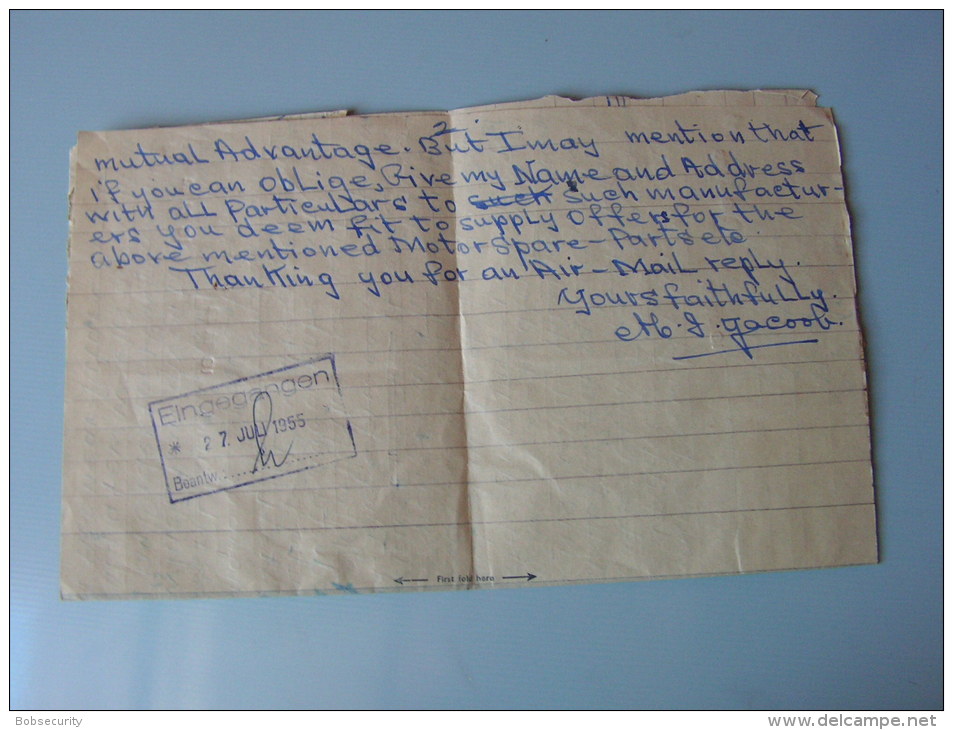 2.
mutual Advantage. But I may mention that
if you can oblige, Give my Name and Address
with all Particulars to such such manufactur-
ers you deem fit to supply offers for the
above mentioned Motor Spare-Parts etc.
Thanking you for an Air-Mail reply.
Yours faithfully.
Eingegangen
* 27. JULI 1955
Beantw.
← First fold here →
Bobsecurity
www.delcampe.net